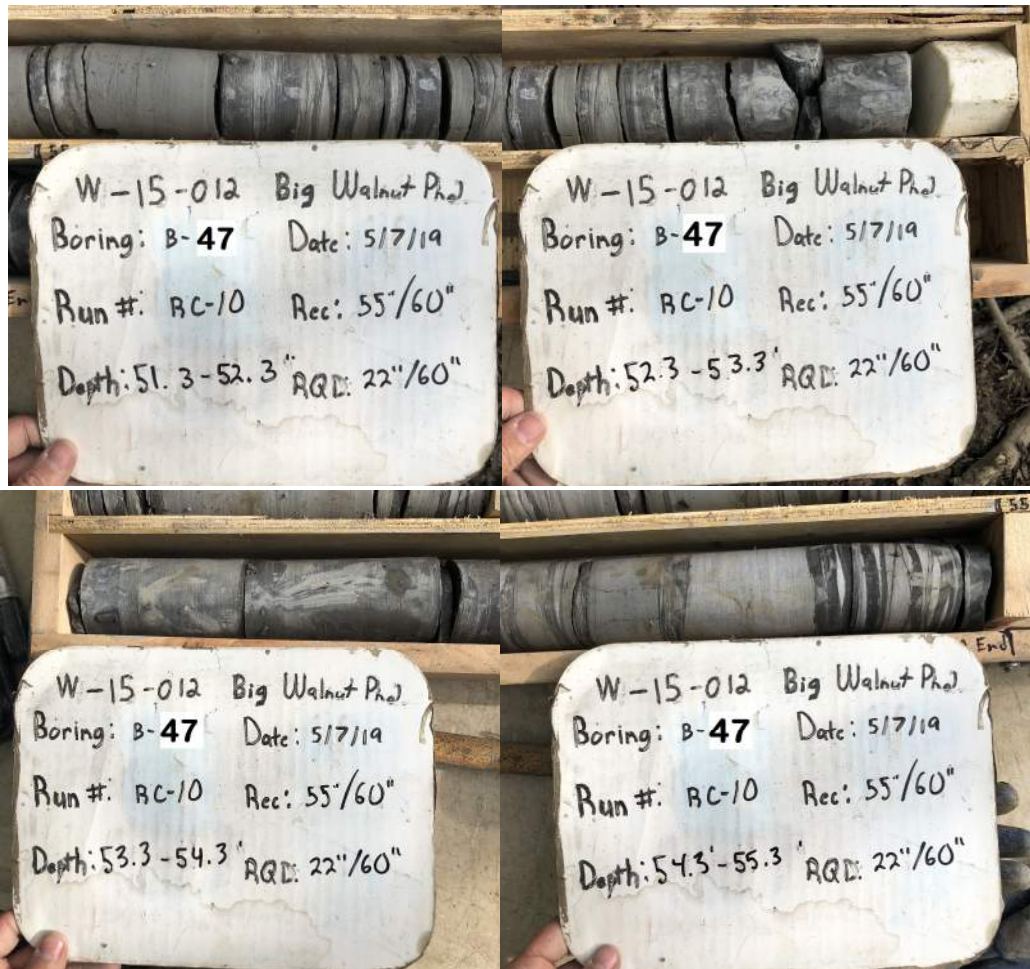 W-15-012 Big Walnut Ph.2
Boring: B-47 Date: 5/7/19
Run #: RC-10 Rec: 55"/60"
Depth: 51.3-52.3' RQD: 22"/60"
W-15-012 Big Walnut Ph.2
Boring: B-47 Date: 5/7/19
Run #: RC-10 Rec: 55"/60"
Depth: 52.3-53.3' RQD: 22"/60"
55
End
W-15-012 Big Walnut Ph.2
Boring: B-47 Date: 5/7/19
Run #: RC-10 Rec: 55"/60"
Depth: 53.3-54.3' RQD: 22"/60"
W-15-012 Big Walnut Ph.2
Boring: B-47 Date: 5/7/19
Run #: RC-10 Rec: 55"/60"
Depth: 54.3'-55.3' RQD: 22"/60"